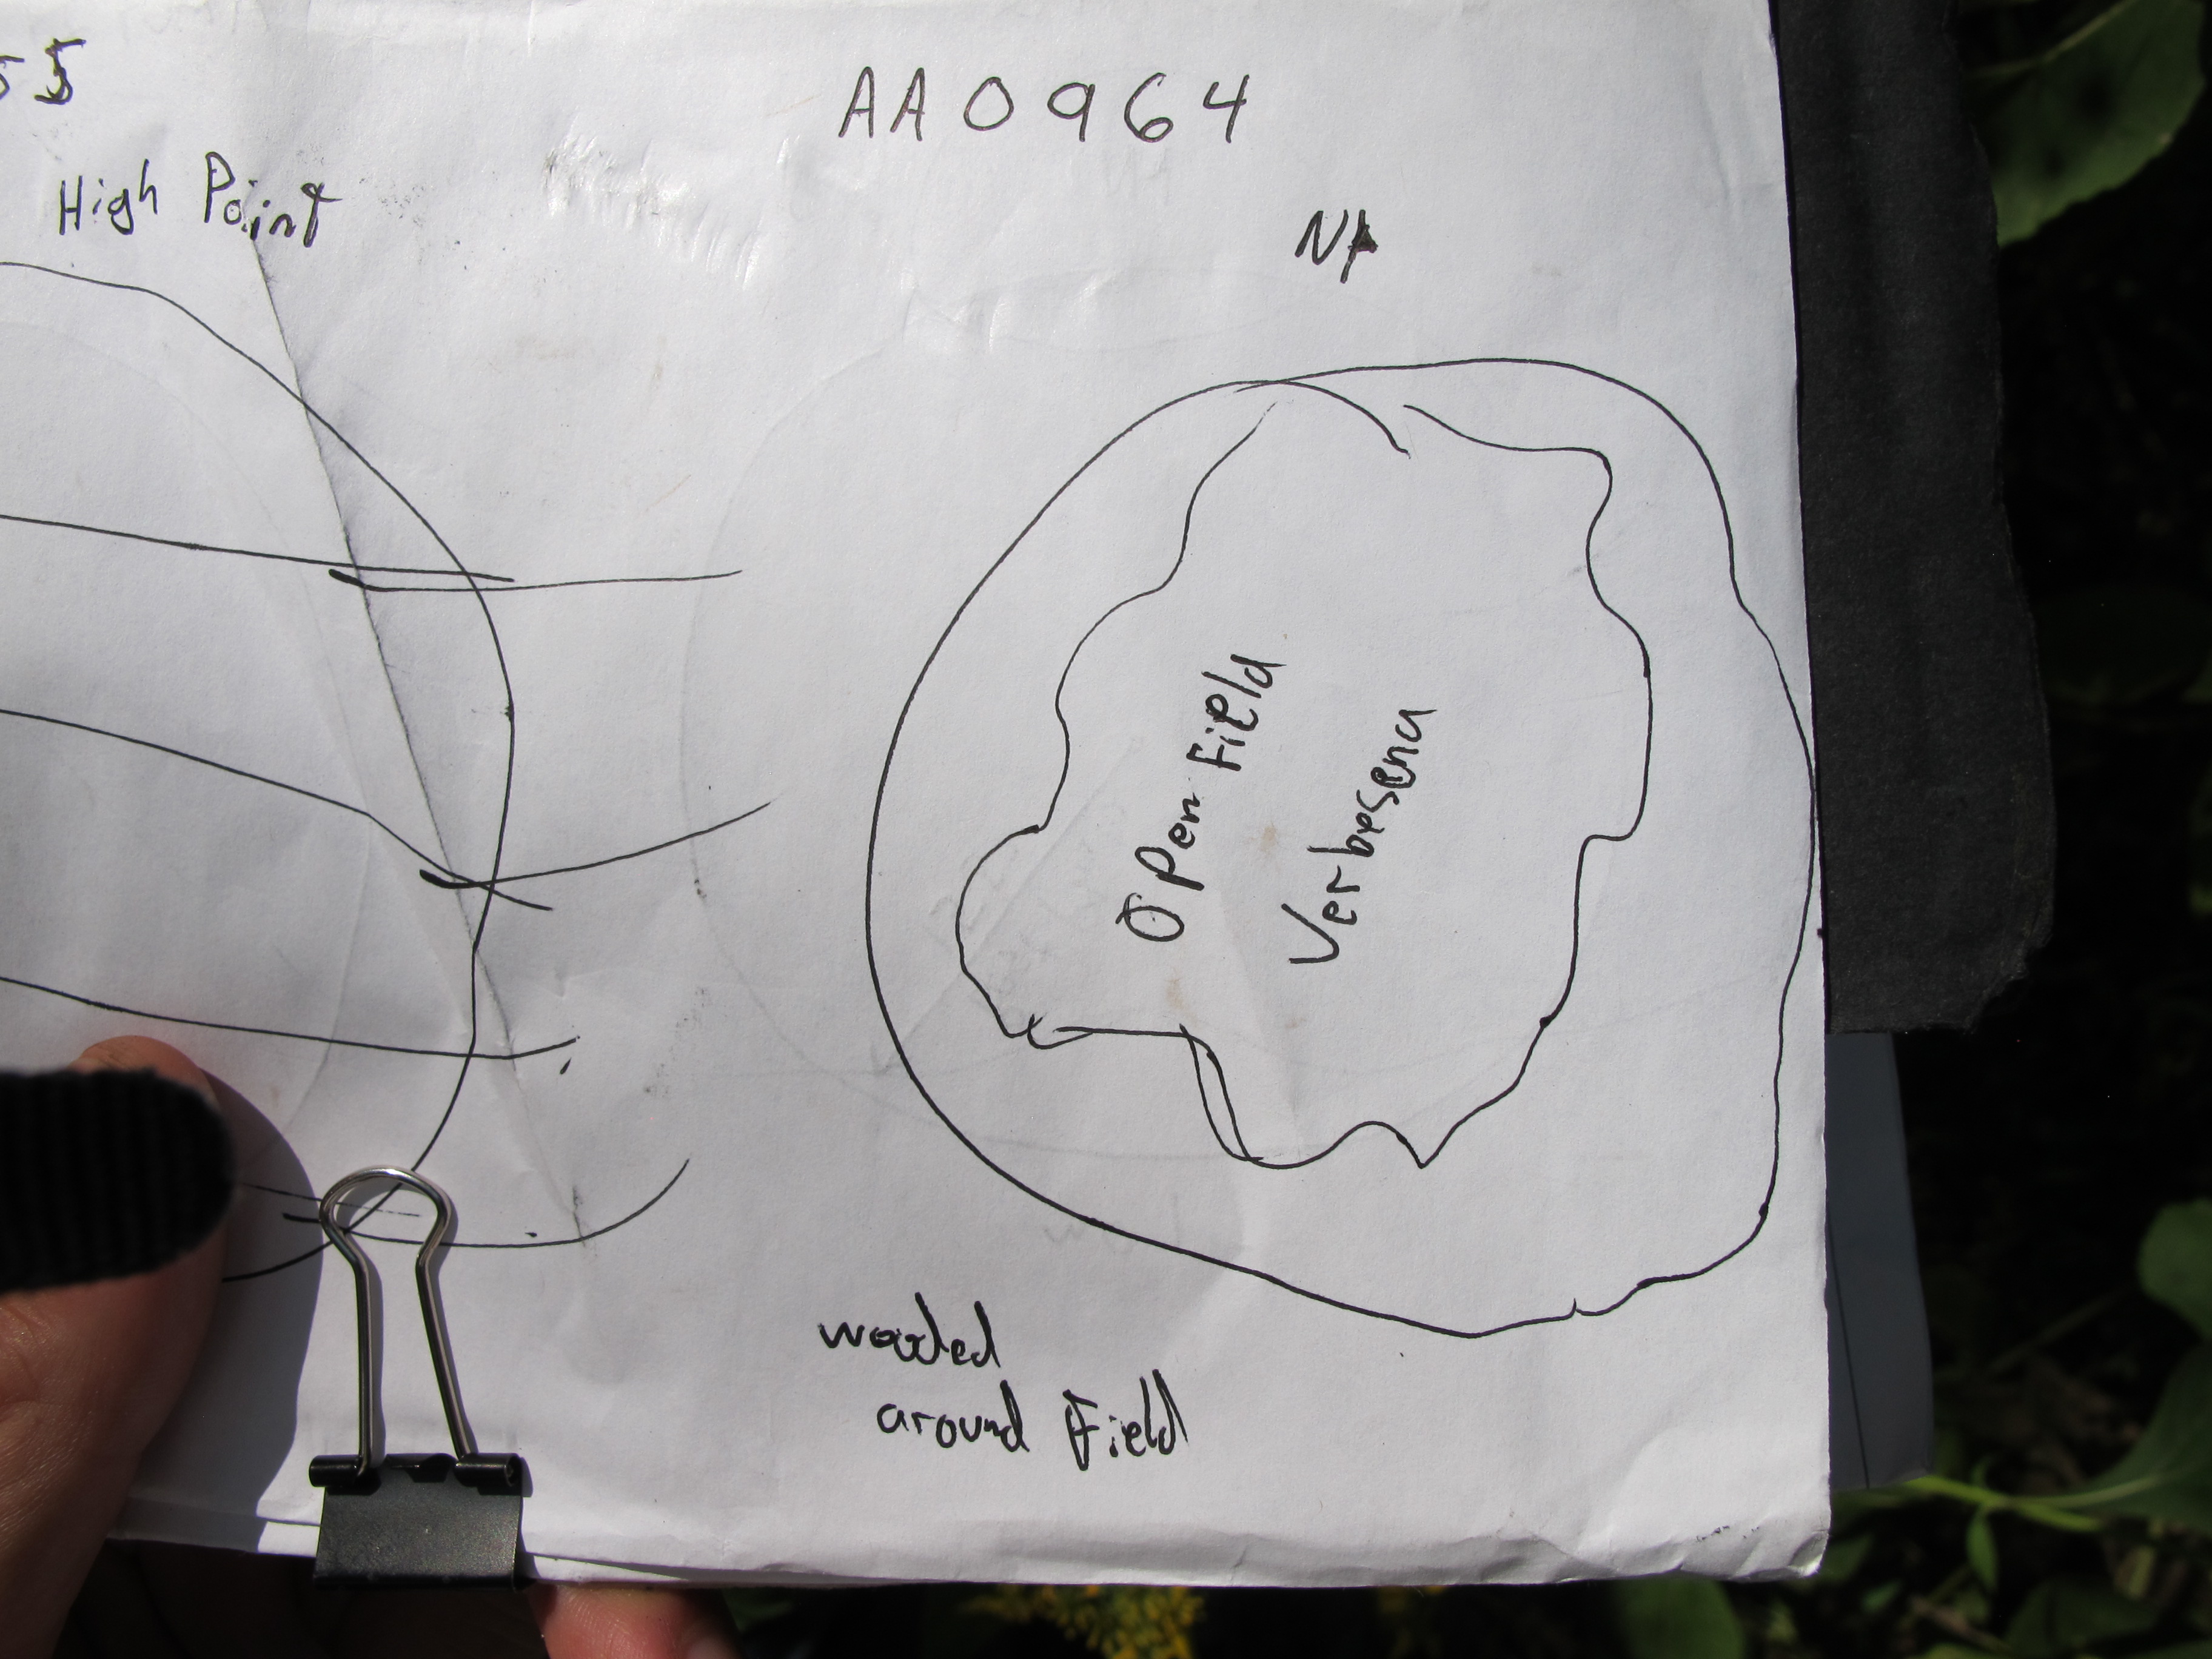 55
High Point
AA0964
N
Open Field
Verbesena
wooded
around Field